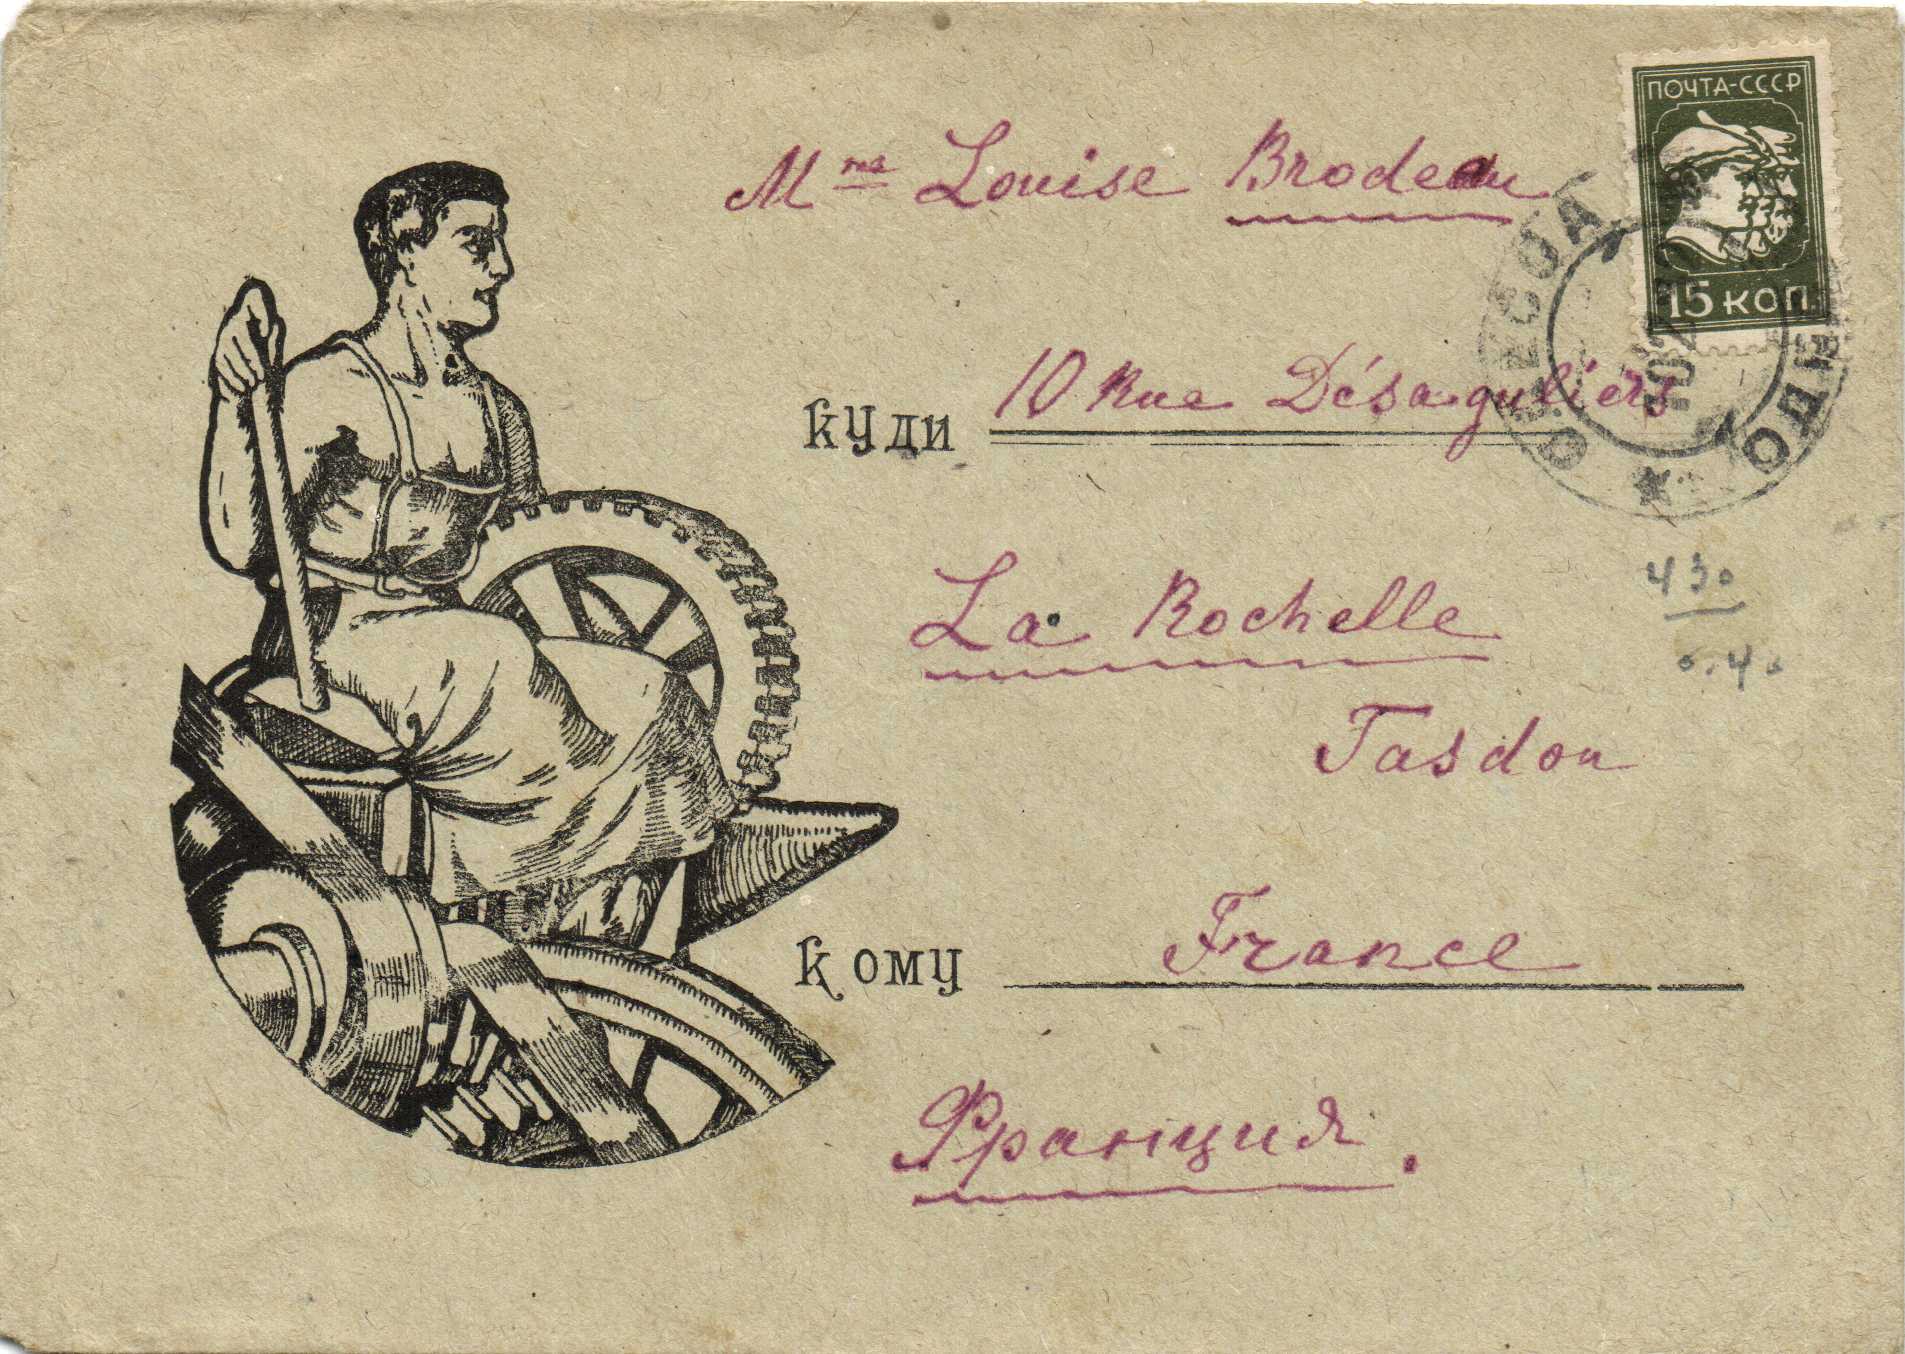 ПОЧТА-СССР
15 КОП.
Mme Louise Brodeau
ОДЕСА
куди 10 Rue Désaguliers
430
0.40
La Rochelle
Tasdon
кому France
Франция.